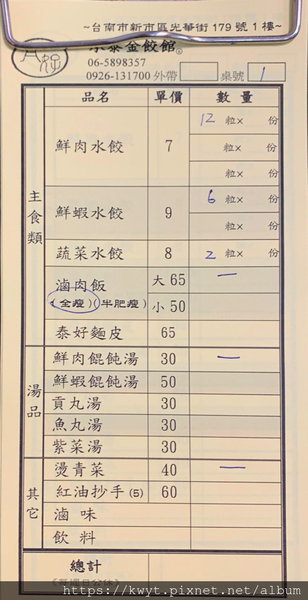 ~台南市新市區光華街179號1樓~
泰金餃館
06-5898357
0926-131700 外帶 桌號 1
品名 單價 數量
主食類
鮮肉水餃 7 12 粒× 份
粒× 份
粒× 份
鮮蝦水餃 9 6 粒× 份
粒× 份
蔬菜水餃 8 2 粒× 份
滷肉飯 大 65 一
(全瘦)(半肥瘦) 小 50
泰好麵皮 65
湯品
鮮肉餛飩湯 30 一
鮮蝦餛飩湯 50
貢丸湯 30
魚丸湯 30
紫菜湯 30
其它
燙青菜 40 一
紅油抄手(5) 60
滷味
飲料
總計
https://kwyt.pixnet.net/album